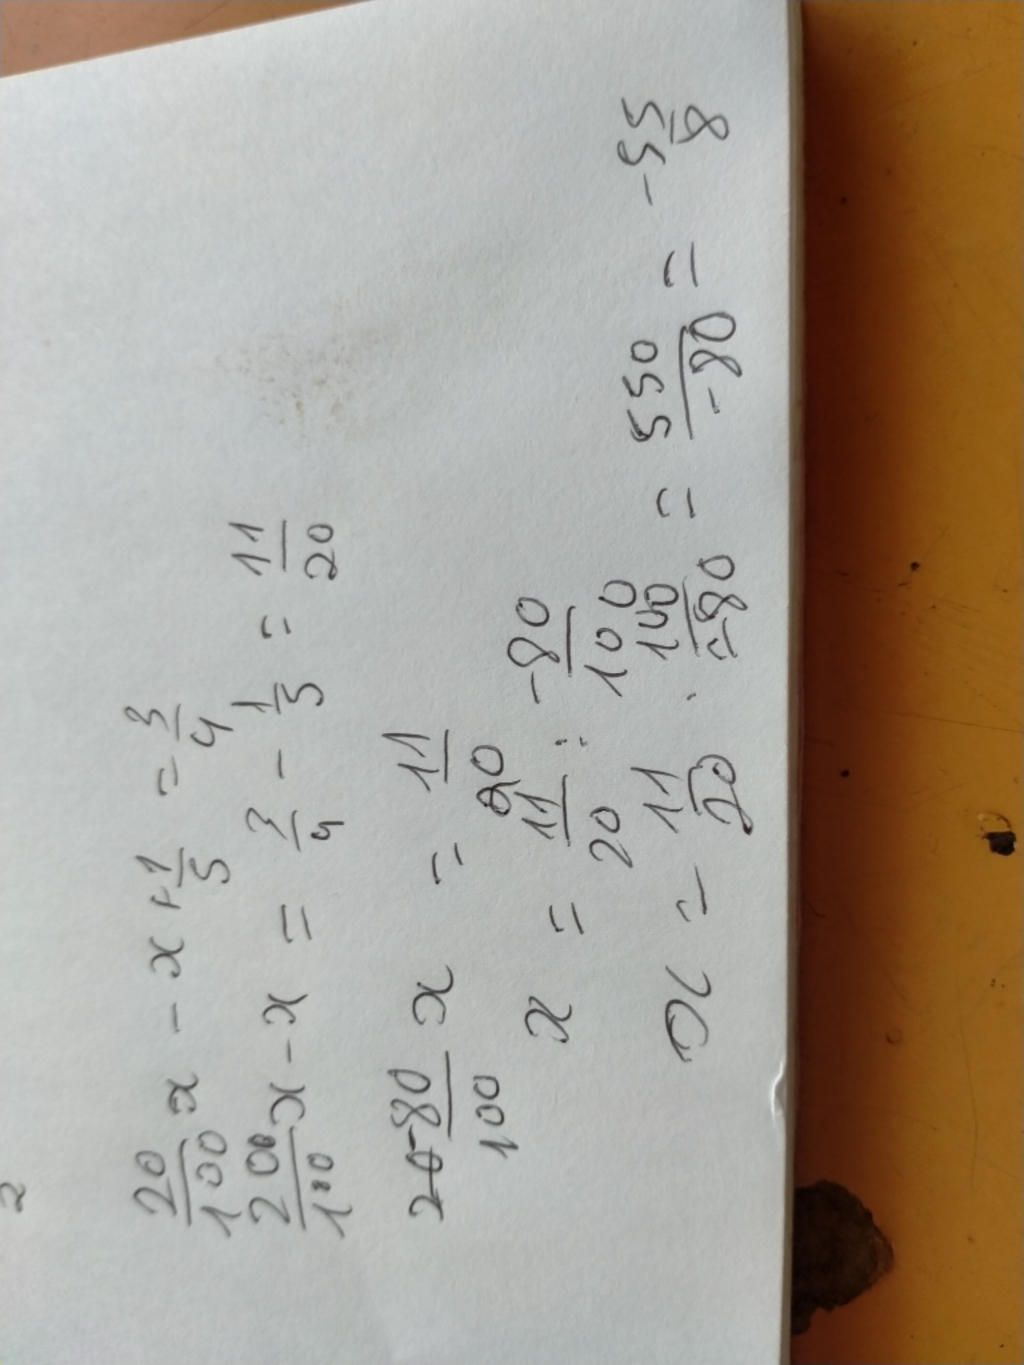 2
20/100 x - x + 1/5 = 3/4
200/100 x - x = 3/4 - 1/5 = 11/20
-80/100 x = 11/20
x = 11/20 : -80/100
x = 11/20 . 100/-80 = 550/-80 = -55/8